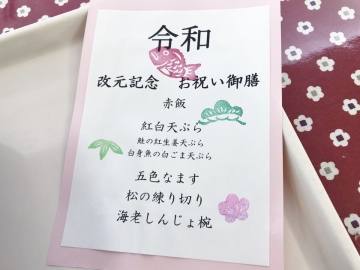 令和
改元記念　お祝い御膳
赤飯
紅白天ぷら
鮭の紅生姜天ぷら
白身魚の白ごま天ぷら
五色なます
松の練り切り
海老しんじょ椀